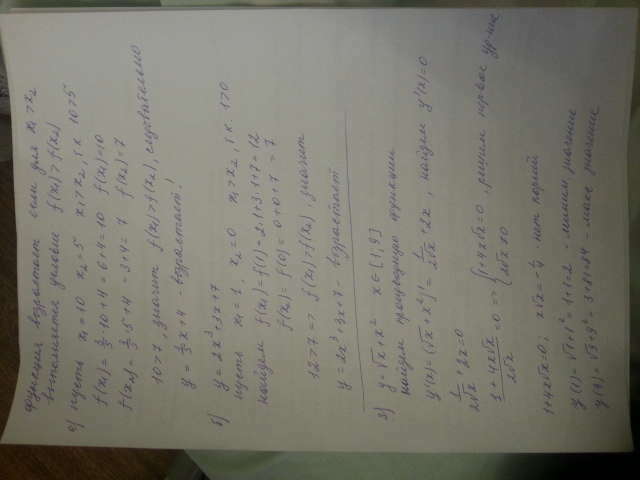 функция возрастает если для x₁ > x₂
выполняется условие f(x₁) > f(x₂)
а) пусть x₁ = 10 x₂ = 5 x₁ > x₂, т.к 10 > 5
f(x₁) = 3/5 · 10 + 4 = 6 + 4 = 10 f(x₁) = 10
f(x₂) = 3/5 · 5 + 4 = 3 + 4 = 7 f(x₂) = 7
10 > 7, значит f(x₁) > f(x₂), следовательно
y = 3/5 x + 4 - возрастает!
б) y = 2x³ + 3x + 7
пусть x₁ = 1, x₂ = 0 x₁ > x₂, т.к. 1 > 0
найдём f(x₁) = f(1) = 2·1 + 3·1 + 7 = 12
f(x₂) = f(0) = 0 + 0 + 7 = 7
12 > 7 => f(x₁) > f(x₂), значит
y = 2x³ + 3x + 7 - возрастает
3) y = √x + x² - x ∈ [1, 9]
найдём производную функции
y'(x) = (√x + x²)' = 1/(2√x) + 2x, найдём y'(x) = 0
1/(2√x) + 2x = 0
(1 + 4x√x)/(2√x) = 0 => { 1 + 4x√x = 0, решим первое ур-ние
2√x ≠ 0
1 + 4x√x = 0; x√x = -1/4 - нет корней
y(1) = √1 + 1² = 1 + 1 = 2 - миним значение
y(9) = √9 + 9² = 3 + 81 = 84 - макс значение